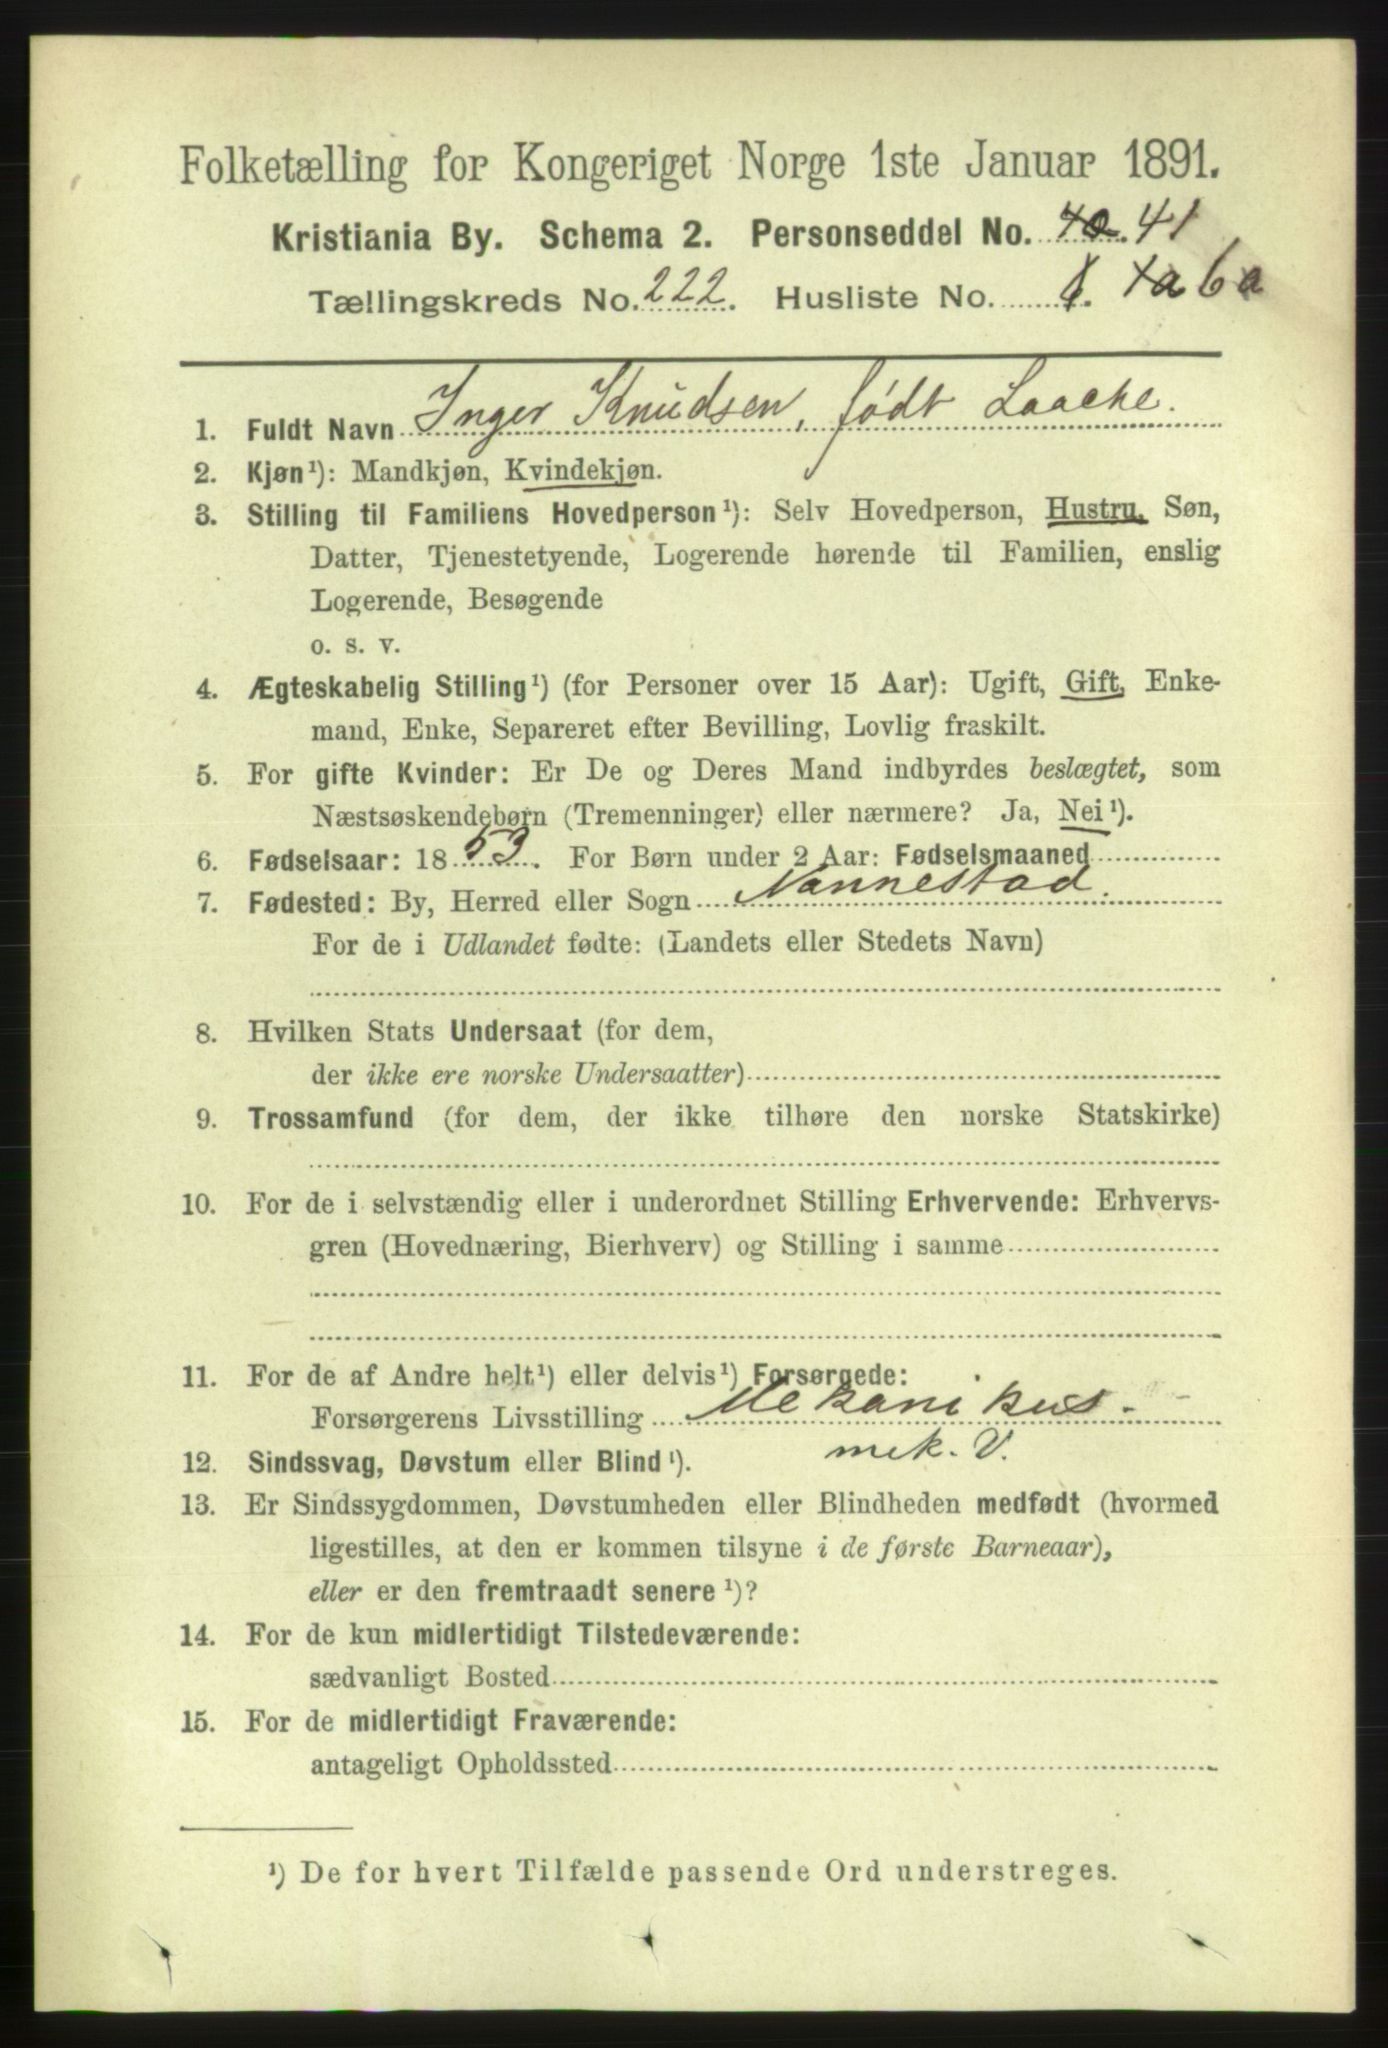 Folketælling for Kongeriget Norge 1ste Januar 1891.
Kristiania By. Schema 2. Personseddel No. 40. 41
Tællingskreds No. 222. Husliste No. 6a
1. Fuldt Navn Inger Knudsen, født Laache.
2. Kjøn¹): Mandkjøn, Kvindekjøn.
3. Stilling til Familiens Hovedperson¹): Selv Hovedperson, Hustru, Søn,
Datter, Tjenestetyende, Logerende hørende til Familien, enslig
Logerende, Besøgende
o. s. v.
4. Ægteskabelig Stilling¹) (for Personer over 15 Aar): Ugift, Gift, Enke-
mand, Enke, Separeret efter Bevilling, Lovlig fraskilt.
5. For gifte Kvinder: Er De og Deres Mand indbyrdes beslægtet, som
Næstsøskendebørn (Tremenninger) eller nærmere? Ja, Nei¹).
6. Fødselsaar: 1853. For Børn under 2 Aar: Fødselsmaaned
7. Fødested: By, Herred eller Sogn Nannestad.
For de i Udlandet fødte: (Landets eller Stedets Navn)
8. Hvilken Stats Undersaat (for dem,
der ikke ere norske Undersaatter)
9. Trossamfund (for dem, der ikke tilhøre den norske Statskirke)
10. For de i selvstændig eller i underordnet Stilling Erhvervende: Erhvervs-
gren (Hovednæring, Bierhverv) og Stilling i samme
11. For de af Andre helt¹) eller delvis¹) Forsørgede:
Forsørgerens Livsstilling Mekanikus.
mek. V.
12. Sindssvag, Døvstum eller Blind¹).
13. Er Sindssygdommen, Døvstumheden eller Blindheden medfødt (hvormed
ligestilles, at den er kommen tilsyne i de første Barneaar),
eller er den fremtraadt senere¹)?
14. For de kun midlertidigt Tilstedeværende:
sædvanligt Bosted
15. For de midlertidigt Fraværende:
antageligt Opholdssted
¹) De for hvert Tilfælde passende Ord understreges.